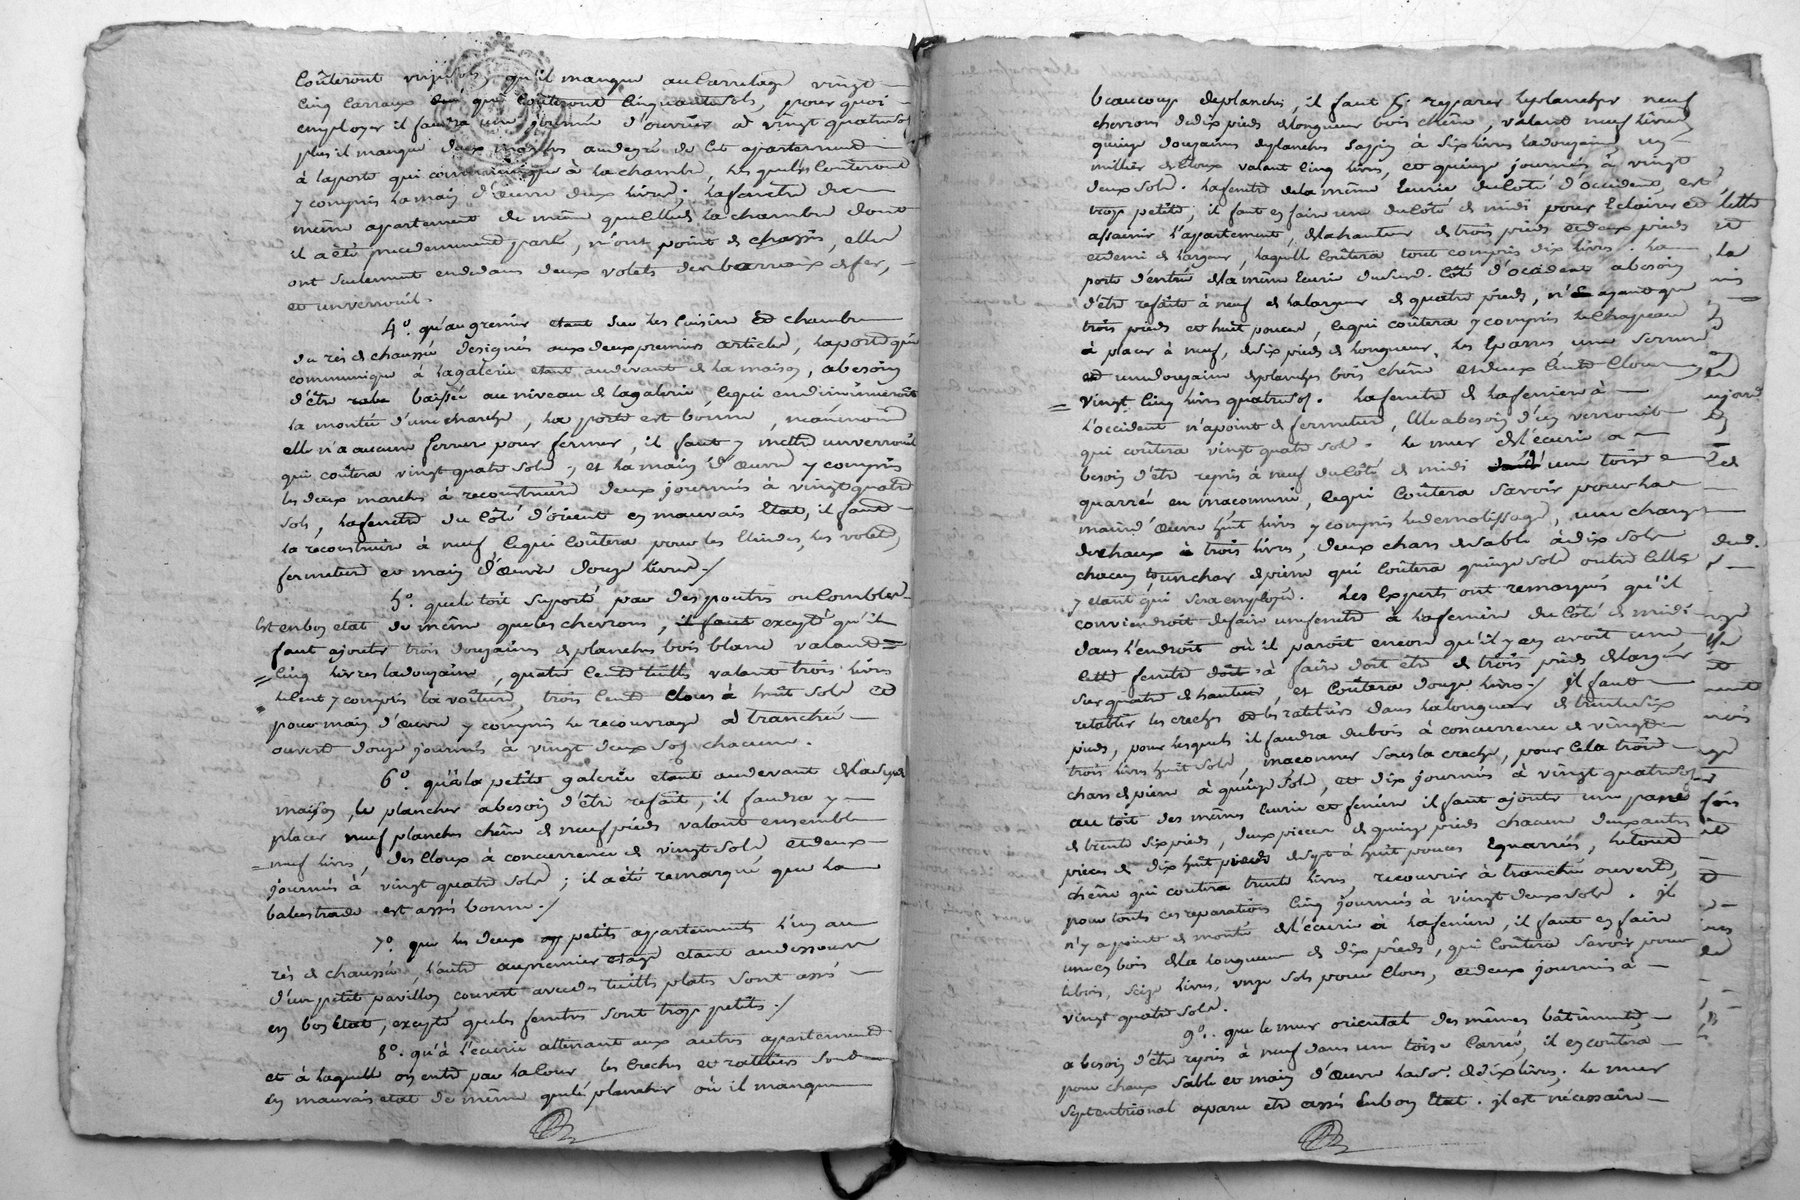 coûteront qu'il manque au carrelage vingt
cinq carraux qui coûteront cinquante sols, pour quoi
employer il faudra une journée d'ouvrier à vingt quatre sols
plus il manque deux marches au degré de cet appartement
à la porte qui communique à la chambre, les quelles coûteront
y compris la main d'œuvre deux livres; la fenêtre de
même apartement de même que celle de la chambre dont
il a été précédemment parlé, n'ont point de chassis, elles
ont seulement endedans deux volets des barreaux de fer,
et un verrouil.
4°. qu'au grenier etant sur les cuisine et chambre
du rès de chaussée designés aux deux premiers articles, la porte qui
communique à la galerie etant audevant de la maison, a besoin
d'être baissée au niveau de la galerie, ce qui en diminuera
la montée d'une marche, la porte est bonne, neanmoins
elle n'a aucune ferrure pour fermer, il faut y mettre un verrouil
qui coûtera vingt quatre sols, et la main d'œuvre y compris
les deux marches à reconstruire deux journées à vingt quatre
sols, la fenetre du côté d'orient en mauvais Etat, il faut
la reconstruire à neuf ce qui coûtera pour les les volets,
fermeture et main d'œuvre douze livres./
5°. que le toit suporté par des poutres ou combles
est en bon etat de même que les chevrons, il faut excepté qu'il
faut ajouter trois douzaines de planches bois blanc valant
cinq livres la douzaine, quatre cents tuiles valant trois livres
le cent y compris la voiture, trois cents clous à huit sols et
pour main d'œuvre y compris le recouvrage à tranchée
ouverte douze journées à vingt deux sols chacune.
6°. qu'à la petite galerie etant audevant de la dite
maison, le plancher a besoin d'être refait, il faudra y
placer neuf planches chêne de neuf pieds valant ensemble
neuf livres, des cloux à concurrence de vingt sols, et deux
journées à vingt quatre sols; il a été remarqué que la
balustrade est assés bonne./
7°. que les deux petits appartements l'un au
rès de chaussée, l'autre au premier etage etant audessous
d'un petit pavillon couvert avec des tuilles plates sont assés
en bon Etat, excepté que les fenetres sont trop petites./
8°. qu'à l'écurie attenant aux autres appartements
et à laquelle on entre par la cour les creches et rateliers sont
en mauvais etat de même que le plancher où il manque
beaucoup de planches, il faut pr. reparer le plancher neuf
chevrons de dix pieds de longueur bois chêne, valant neuf livres
quinze douzaines de planches sapin à six livres la douzaine, un
millier de cloux valant cinq livres, et quinze journées à vingt
deux sols. la fenetre de la même Ecurie du côté d'occident, est
trop petite, il faut en faire une du côté de midi pour Eclairer et
assainir l'appartement, de la hauteur de trois pieds et deux pieds
et demi de largeur, laquelle coûtera tout compris dix livres. la
porte d'entrée de la même Ecurie du côté d'occident a besoin
d'être refaite à neuf de la largeur de quatre pieds, n'ayant que
trois pieds et huit pouces, ce qui coûtera y compris le chapeau
à placer à neuf, de six pieds de longueur, les Eparres une serrure
et une douzaine de planches bois chêne et deux cents cloux
vingt cinq livres quatre sols. la fenetre de la feniere à
l'occident n'a point de fermeture, Elle a besoin d'un verrouil
qui coûtera vingt quatre sols. le mur de l'écurie a
besoin d'être repris à neuf du côté de midi une toise
quarrée en maconnerie, ce qui coûtera savoir pour la
main d'œuvre huit livres y compris le demolissage, une charge
de chaux à trois livres, deux chars de sable à dix sols
chacun un char de pierre qui coûtera quinze sols outre celles
y etant qui sera employée. les Experts ont remarqué qu'il
conviendroit de faire une fenetre à la feniere du côté de midi
dans l'endroit où il paroit encore qu'il y en avoit une
cette fenetre à faire doit etre de trois pieds de largeur
sur quatre de hauteur, et coûtera douze livres./ il faut
retablir les creches et les rateliers dans la longueur de trente six
pieds, pour lesquels il faudra du bois à concurrence de vingt
trois livres huit sols, maconner sous la creche, pour cela trois
chars de pierre à quinze sols, et dix journées à vingt quatre sols
au toit des mêmes Ecurie et feniere il faut ajouter une pane
de trente six pieds, deux pieces de quinze pieds chacune deux autres
pieces de dix huit pieds de sept à huit pouces Equarries, le tout
chêne qui coûtera trente livres recouvrir à tranchée ouverte,
pour toutes ces reparations cinq journées à vingt deux sols. il
n'y a point de montée de l'écurie à la feniere, il faut en faire
une en bois de la longueur de dix pieds, qui coûtera savoir pour
le bois, seize livres, onze sols pour clous, et deux journées à
vingt quatre sols.
9°. que le mur oriental des mêmes bâtiments
a besoin d'être repris à neuf dans une toise carrée, il en coûtera
pour chaux sable et main d'œuvre la somme de dix livres. le mur
septentrional a paru etre assés En bon Etat. il est nécessaire